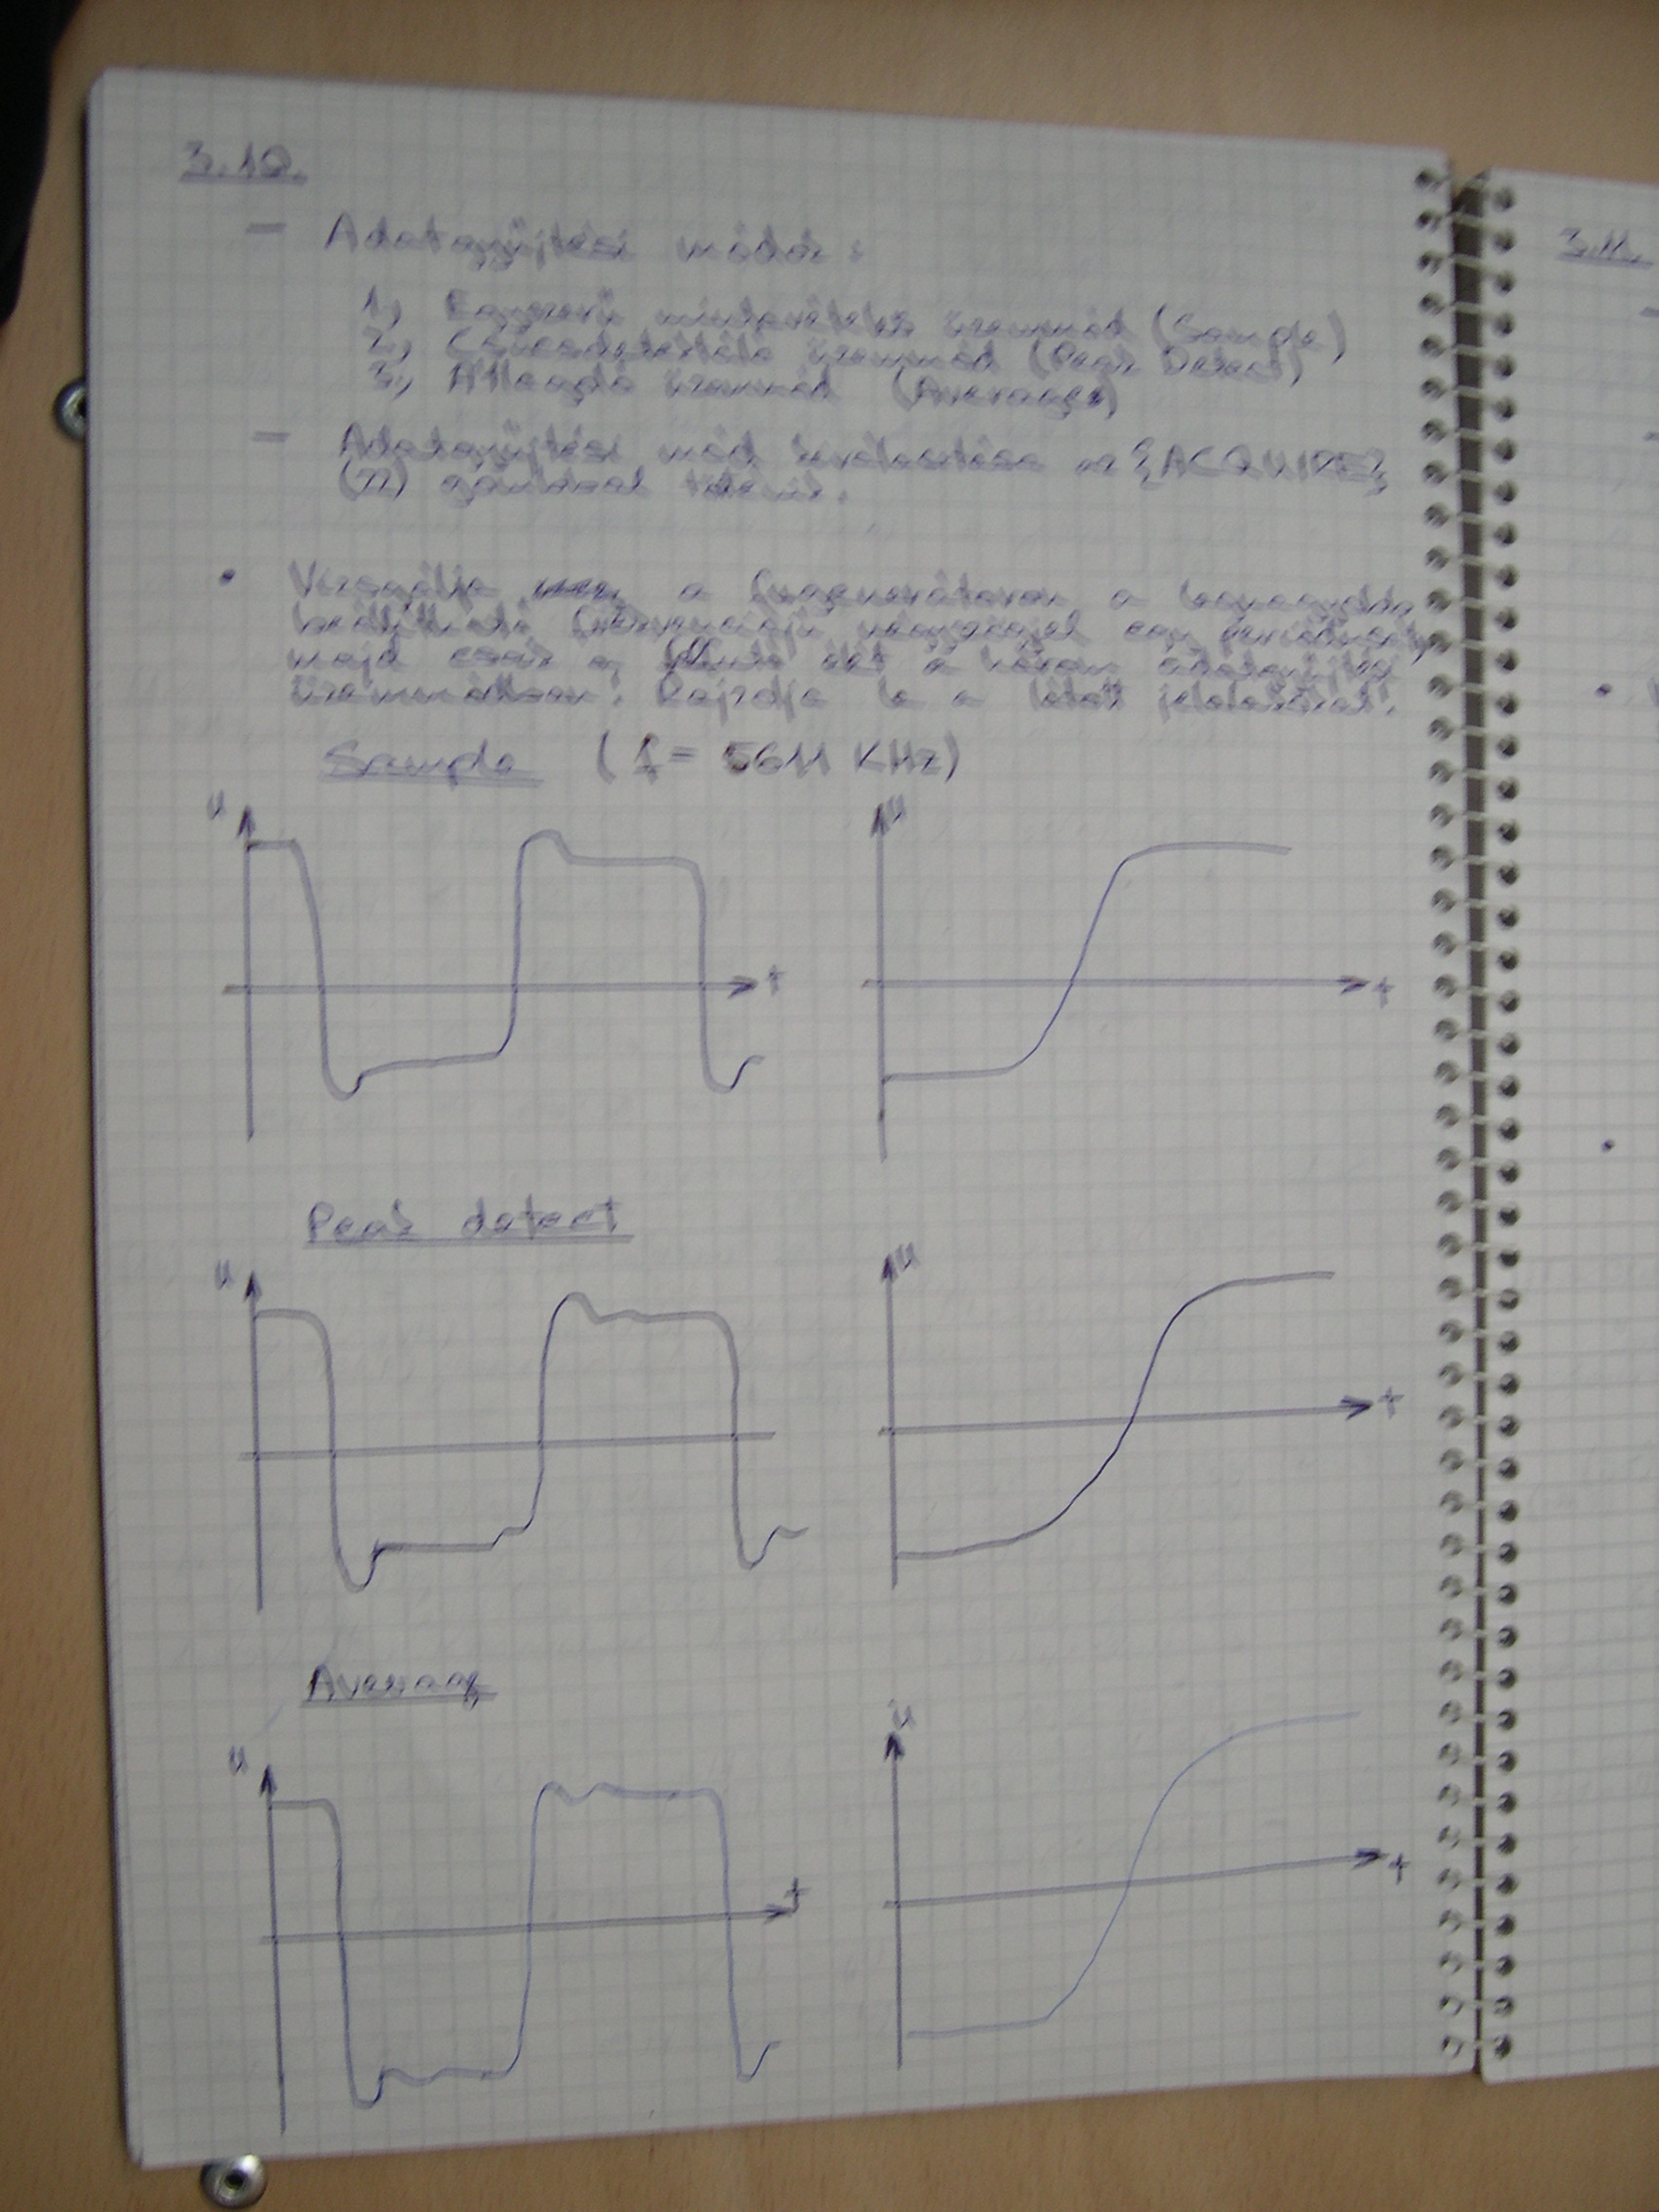 3.10.
— Adatgyűjtési módok:
1, Egyszerű mintavételes üzemmód (Sample)
2, Csúcsdetektáló üzemmód (Peak Detect)
3, Átlagoló üzemmód (Average)
— Adatgyűjtési mód kiválasztása az {ACQUIRE}
gombbal történik.
• Vizsgálja meg a függvénygenerátoron a legnagyobb
beállítható frekvenciájú négyszögjel egy periódusát,
majd csak a felfutó élét a három adatgyűjtési
üzemmódban! Rajzolja le a látott jelalakokat!
Sample (f = 5611 KHz)
u t
u t
Peak detect
u
u t
Average
u t
u t
3.11.